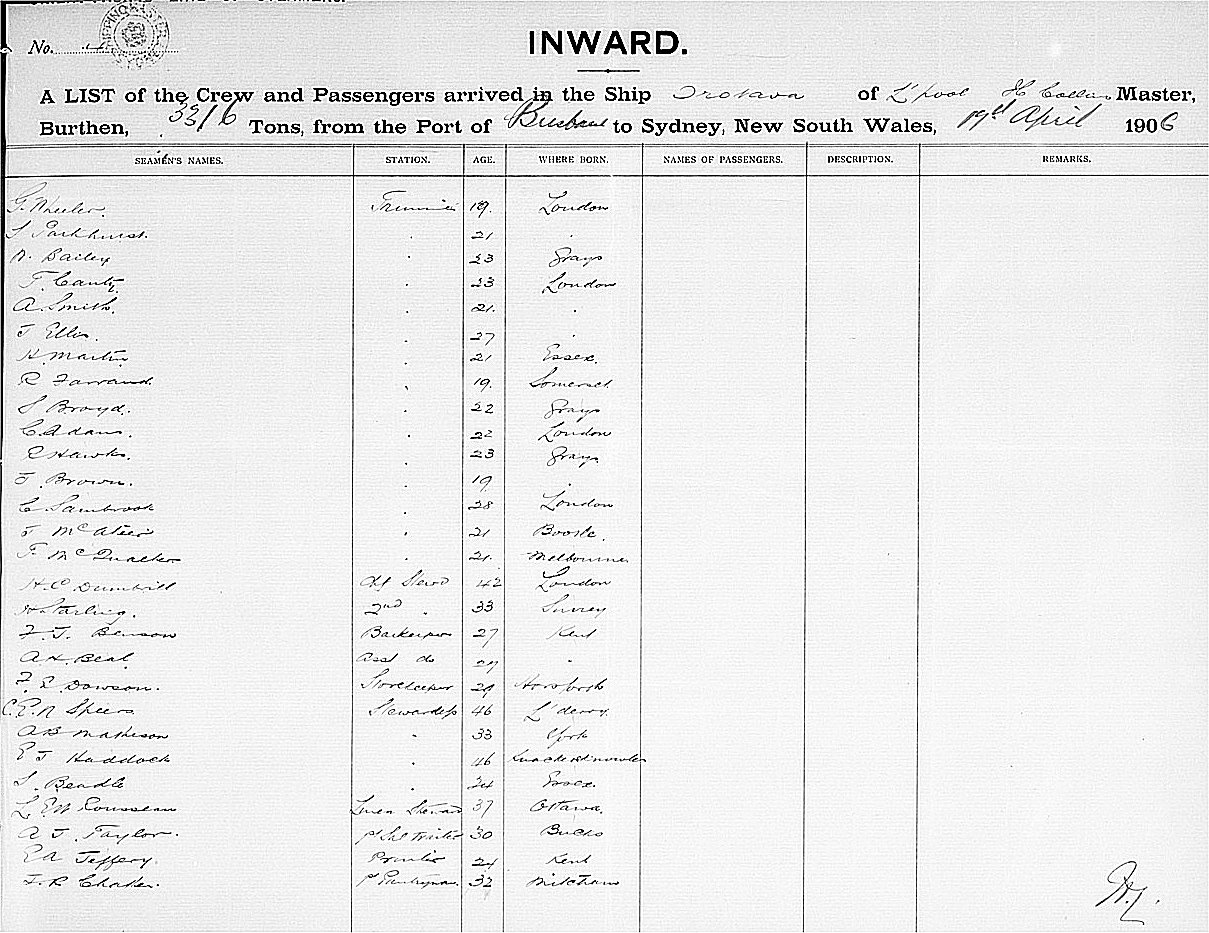 No. 4
INWARD.
A LIST of the Crew and Passengers arrived in the Ship Orotava of L'pool H Collins Master,
Burthen, 3316 Tons, from the Port of Brisbane to Sydney, New South Wales, 19th April 1906
SEAMEN'S NAMES. STATION. AGE. WHERE BORN. NAMES OF PASSENGERS. DESCRIPTION. REMARKS.
G. Wheeler. Trimmer 19. London
S Parkhurst. . 21 .
W. Bailey . 23 Grays
T. Canty. . 23 London
A. Smith. . 21. .
J Ellis. . 27 .
H. Martin . 21 Essex.
R Farrand. . 19. Somerset
S Broyd. . 22 Grays
C. Adams. . 22 London
R Hawks. . 23 Grays
J. Brown. . 19 .
C. Sambrook . 28 London
J McAteer . 21 Bootle.
F. Mc . 21. Melbourne
H. C Dumbrill Stewd 42 London
H Starling. 2nd . 33 Surrey
F. J. Benson Barkeeper 27 Kent
A. H. Beal Asst do 29 .
F. E. Dowson. Storekeeper 29
C. E. N Speers Stewardess 46 L'derry.
A B Matheson . 33 York
E J Haddock . 46
S. Beadle . 24 Essex.
L. E. W Rousseau Linen Steward 37 Ottawa.
A J. Taylor. 30 Bucks
E A Jeffery. Printer 24 Kent
F. R P Pantryman 32 Mitcham